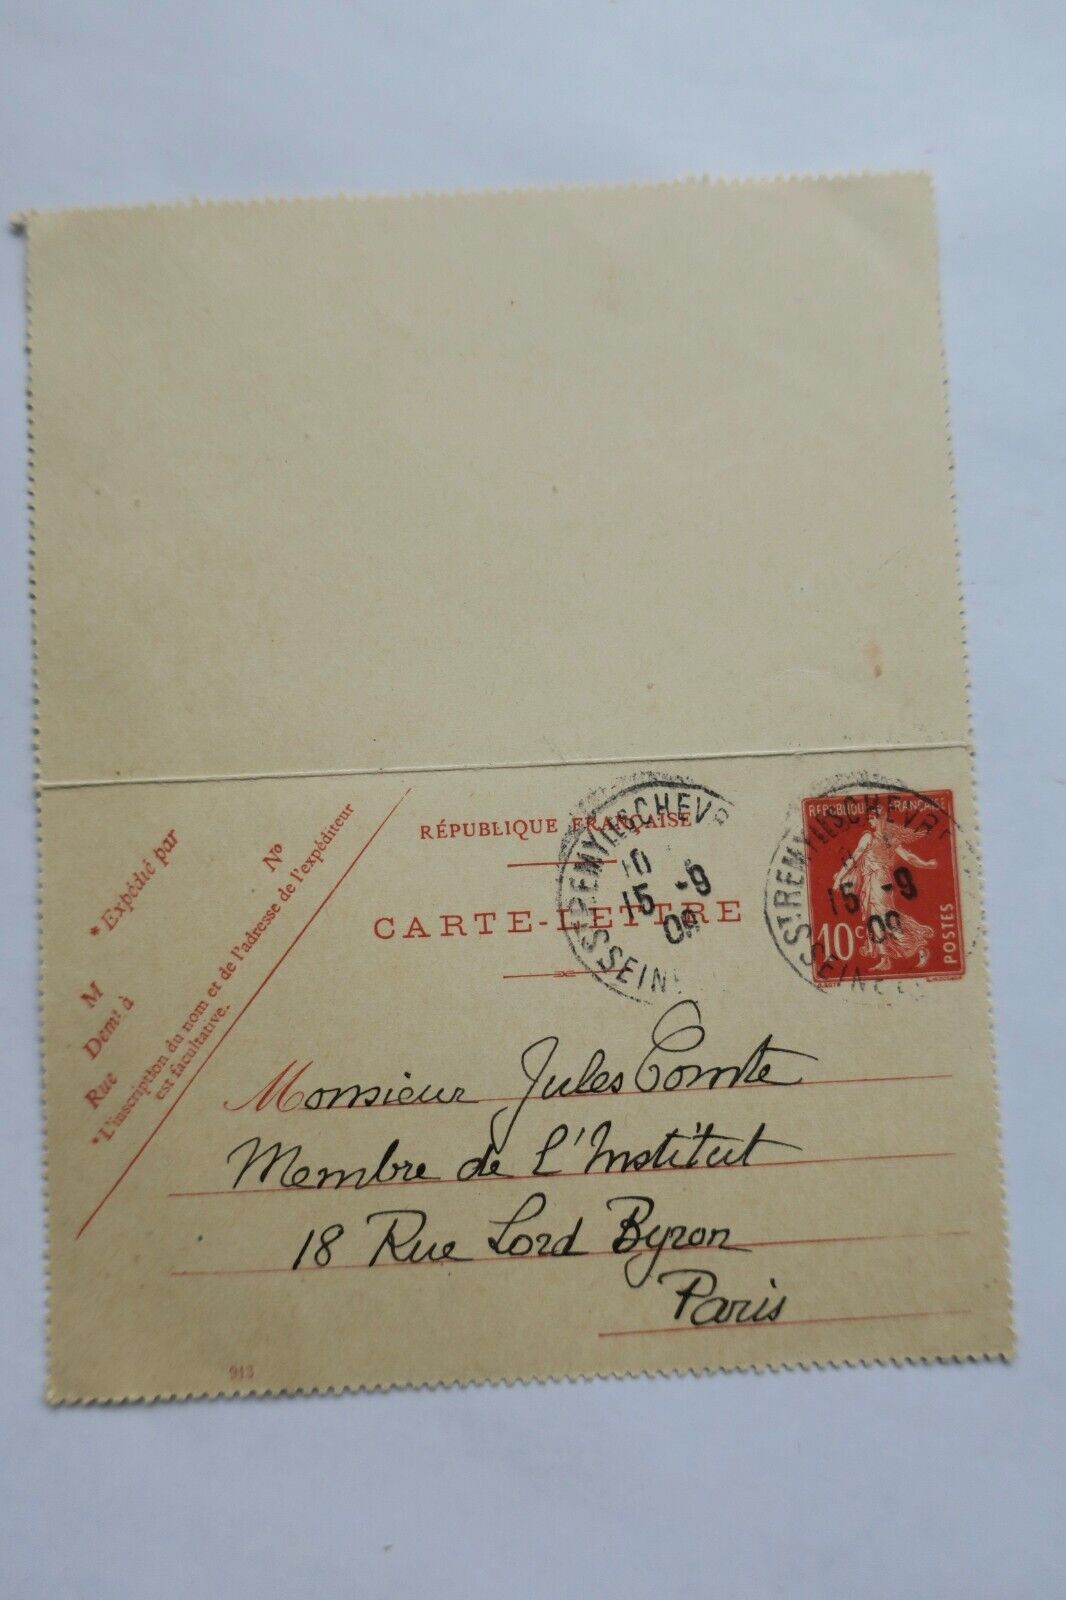 RÉPUBLIQUE FRANÇAISE
CARTE-LETTRE
* Expédié par
M
Demt à
Rue Nº
*L'inscription du nom et de l'adresse de l'expéditeur
est facultative.
ST REMY LES CHEVR
10
15 -9
09
SEINE
RÉPUBLIQUE FRANÇAISE
10c
POSTES
ST REMY LES CHEVR
15 -9
09
SEINE
Monsieur Jules Comte
Membre de L'Institut
18 Rue Lord Byron
Paris
913